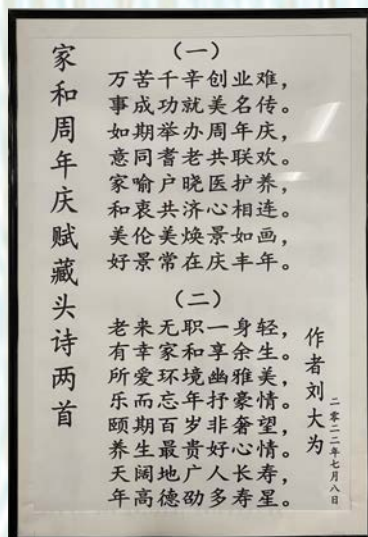 家和周年庆赋藏头诗两首
（一）
万苦千辛创业难，
事成功就美名传。
如期举办周年庆，
意同耆老共联欢。
家喻户晓医护养，
和衷共济心相连。
美伦美焕景如画，
好景常在庆丰年。
（二）
老来无职一身轻，
有幸家和享余生。
所爱环境幽雅美，
乐而忘年抒豪情。
颐期百岁非奢望，
养生最贵好心情。
天阔地广人长寿，
年高德劭多寿星。
作者刘大为
二零二二年七月八日